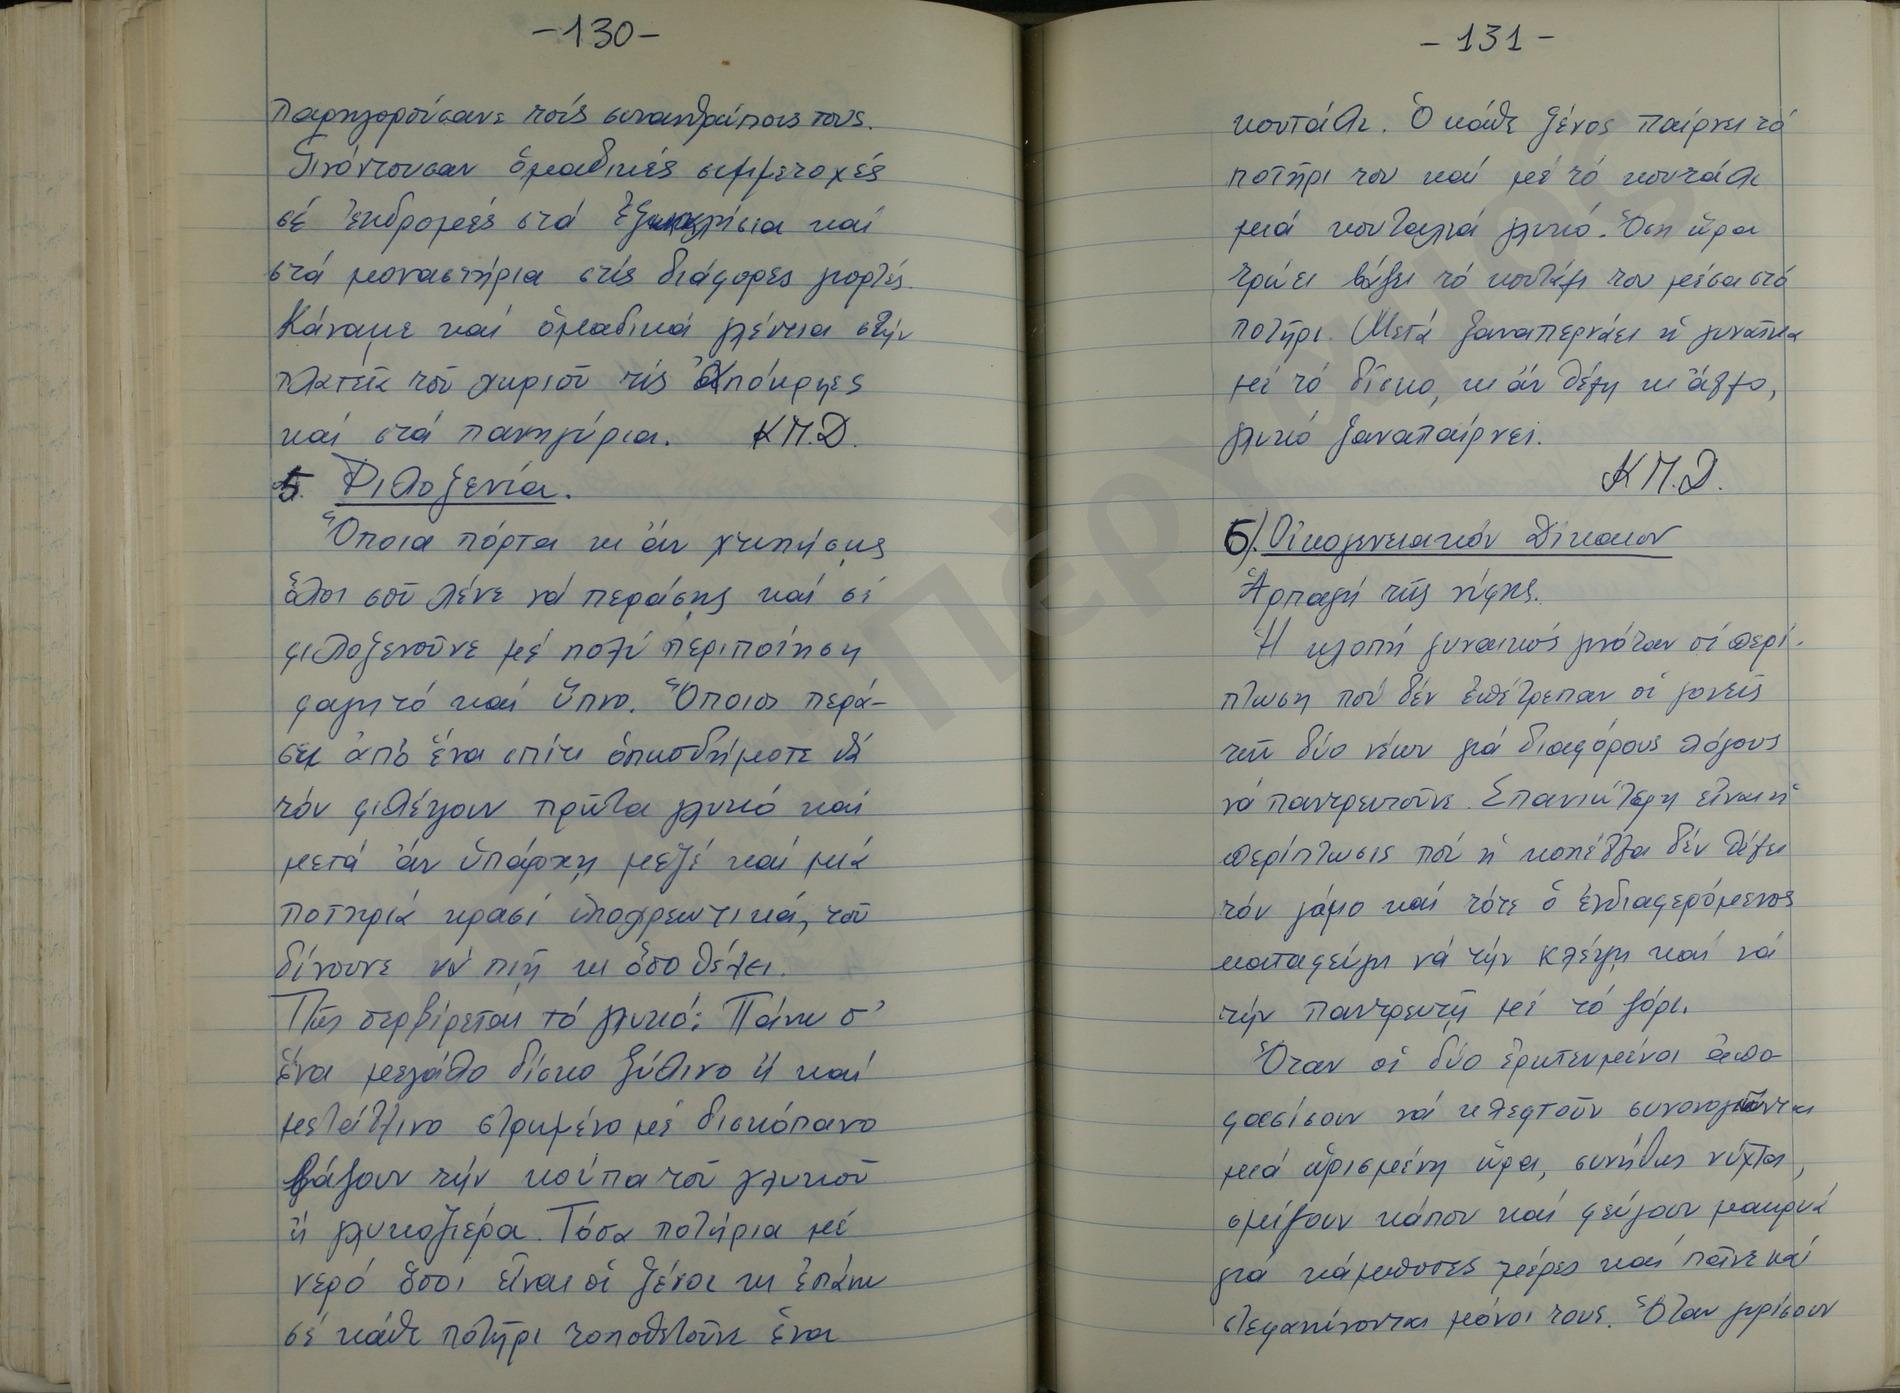 -130-
παρηγορούσανε τούς συνανθρώπους τους.
Γινόντουσαν ὁμαδικές συμμετοχές
σέ ἐκδρομές στά ἐξωκκλήσια καί
στά μοναστήρια στίς διάφορες γιορτές.
Κάναμε καί ὁμαδικά γλέντια στήν
πλατεῖα τοῦ χωριοῦ τίς Ἀπόκρηες
καί στά πανηγύρια. Κ.Π.Δ.
5. Φιλοξενία.
Ὅποια πόρτα κι ἄν χτυπήσῃς
ὅλοι σοῦ λένε νά περάσῃς καί σέ
φιλοξενοῦνε μέ πολύ περιποίηση
φαγητό καί ὕπνο. Ὅποιος περά-
σει ἀπό ἕνα σπίτι ὁπωσδήμοτε θά
τόν φιλέψουν πρῶτα γλυκό καί
μετά ἄν ὑπάρχῃ μεζέ καί μιά
ποτηριά κρασί ὑποχρεωτικά, τοῦ
δίνουνε νά πιῇ κι ὅσο θέλει.
Πῶς σερβίρεται τό γλυκό; Πάνω σ'
ἕνα μεγάλο δίσκο ξύλινο ἤ καί
μετάλλινο στρωμένο μέ δισκόπανο
βάζουν τήν κούπα τοῦ γλυκοῦ
ἤ γλυκοζιέρα. Τόσα ποτήρια μέ
νερό ὅσοι εἶναι οἱ ξένοι κι ἐπάνω
σέ κάθε ποτῆρι τοποθετοῦνε ἕνα
-131-
κουτάλι. Ὁ κάθε ξένος παίρνει τό
ποτῆρι του καί μέ τό κουτάλι
μιά κουταλιά γλυκό. Ὅση ὥρα
τρώει βάζει τό κουτάλι του μέσα στό
ποτῆρι. Μετά ξαναπερνάει ἡ γυναῖκα
μέ τό δίσκο, κι ἄν θέλῃ κι ἄλλο,
γλυκό ξαναπαίρνει.
Κ.Π.Δ.
6). Οἰκογενειακόν Δίκαιον
Ἁρπαγή τῆς νύφης.
Ἡ κλοπή γυναικός γινόταν σέ περί-
πτωση πού δέν ἐπέτρεπαν οἱ γονεῖς
τῶν δύο νέων γιά διαφόρους λόγους
νά παντρευτοῦνε. Σπανιώτερη εἶναι ἡ
περίπτωσις πού ἡ κοπέλλα δέν θέλει
τόν γάμο καί τότε ὁ ἐνδιαφερόμενος
καταφεύγει νά τήν κλέψῃ καί νά
τήν παντρευτῇ μέ τό ζόρι.
Ὅταν οἱ δύο ἐρωτευμένοι ἀπο-
φασίσουν νά κλεφτοῦν συνονομοῦνται
μιά ὡρισμένη ὥρα, συνήθως νύχτα,
σμίγουν κάπου καί φεύγουν μακρυά
γιά κάμποσες μέρες καί πᾶνε καί
στεφανώνονται μόνοι τους. Ὅταν γυρίσουν